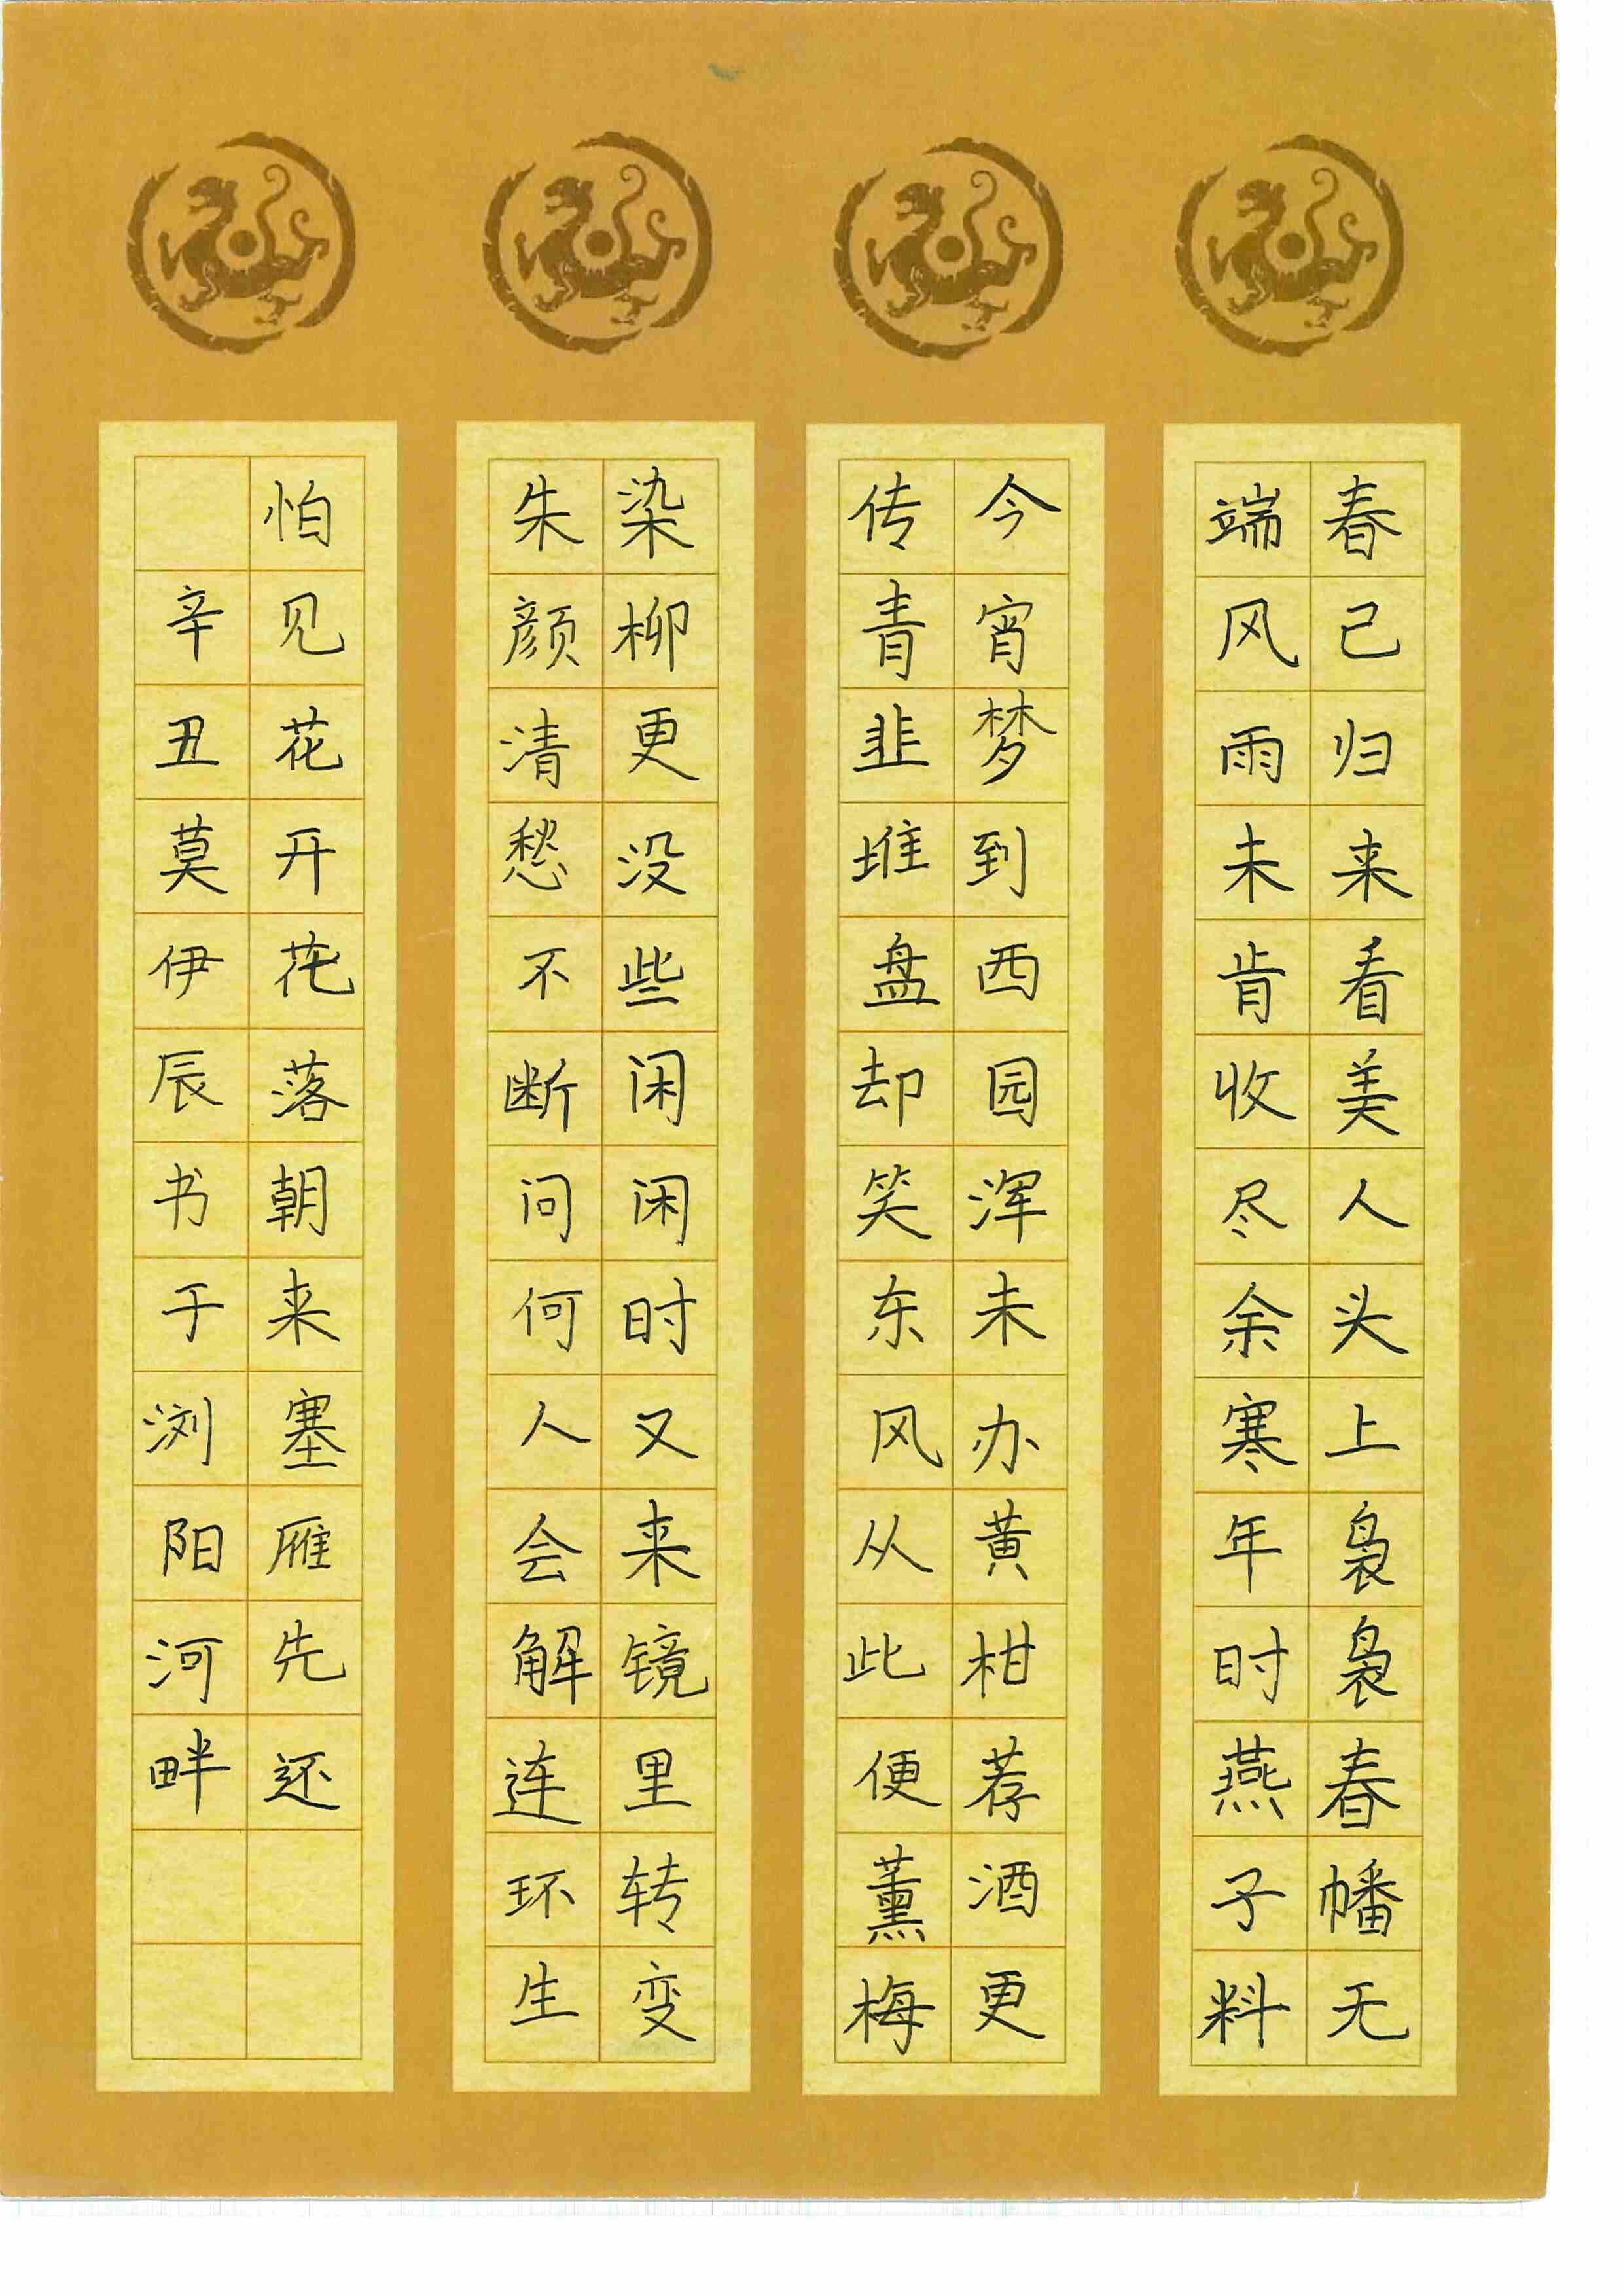 春已归来看美人头上袅袅春幡无
端风雨未肯收尽余寒年时燕子料
今宵梦到西园浑未办黄柑荐酒更
传青韭堆盘却笑东风从此便薰梅
染柳更没些闲闲时又来镜里转变
朱颜清愁不断问何人会解连环生
怕见花开花落朝来塞雁先还
辛丑莫伊辰书于浏阳河畔